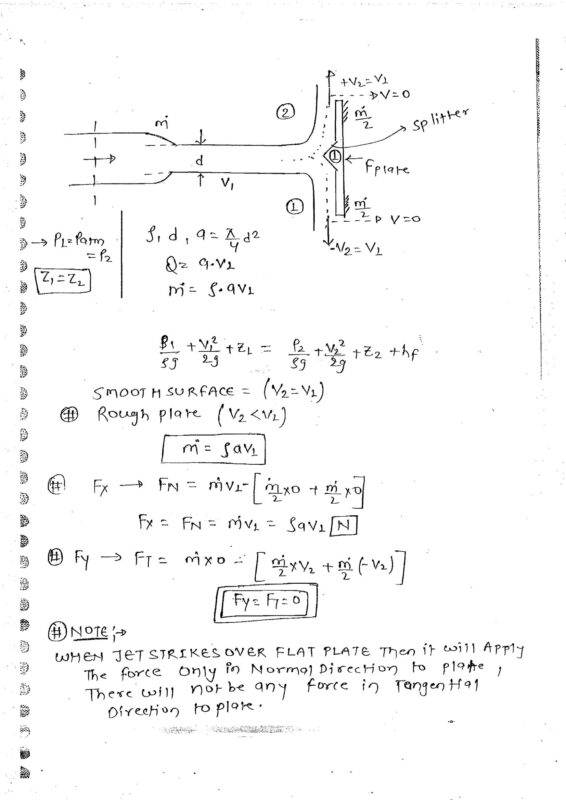 +V2=V1
→ V=0
②
ṁ/2
splitter
ṁ
d
①
Fplate
V1
①
ṁ/2
→ V=0
-V2=V1
→ P1=Patm
=P2
Z1=Z2
ρ, d, a = π/4 d2
Q = a·V1
ṁ = ρ·aV1
P1/ρg + V1²/2g + Z1 = P2/ρg + V2²/2g + Z2 + hf
SMOOTH SURFACE = (V2=V1)
# Rough plate (V2<V1)
ṁ = ρaV1
# Fx → FN = ṁV1-[ṁ/2 x0 + ṁ/2 x0]
Fx = FN = ṁV1 = ρaV1 N
# Fy → FT = ṁx0 - [ṁ/2 xV2 + ṁ/2 (-V2)]
Fy = FT = 0
# NOTE:→
WHEN JET STRIKES OVER FLAT PLATE Then it will Apply
The force only in Normal Direction to plate,
There will not be any force in Tangential
Direction to plate.